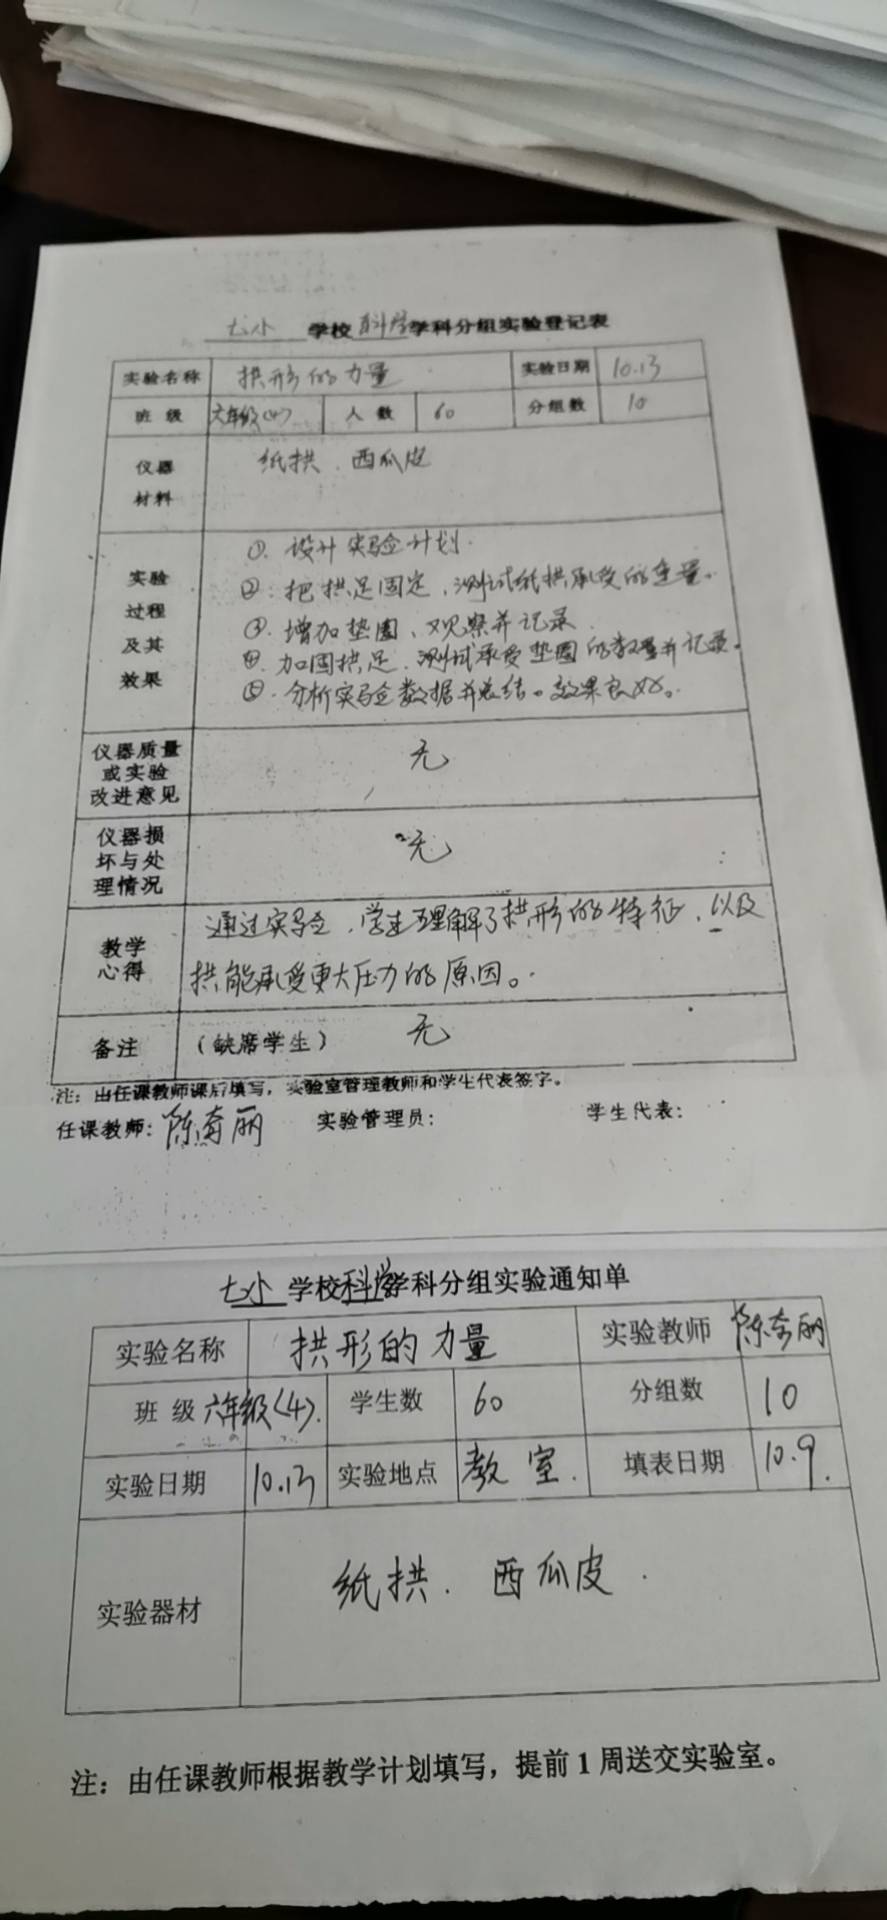 七小 学校 科学 学科分组实验登记表
实验名称 拱形的力量 实验日期 10.13
班 级 六年级(4) 人 数 60 分组数 10
仪器
材料
纸拱、西瓜皮
实验
过程
及其
效果
①. 设计实验计划.
②: 把拱足固定、测试纸拱承受的重量。
③. 增加垫圈、观察并记录.
④. 加固拱足、测试承受垫圈的数量并记录。
⑤. 分析实验数据并总结。效果良好。
仪器质量
或实验
改进意见
无
仪器损
坏与处
理情况
无
教学
心得
通过实验、学生理解了拱形的特征、以及
拱能承受更大压力的原因。
备注 (缺席学生) 无
注: 由任课教师课后填写, 实验室管理教师和学生代表签字。
任课教师: 陈奇丽 实验管理员: 学生代表:
七小 学校科学学科分组实验通知单
实验名称 拱形的力量 实验教师 陈奇丽
班 级 六年级(4). 学生数 60 分组数 10
实验日期 10.13 实验地点 教室. 填表日期 10.9.
实验器材 纸拱、西瓜皮.
注: 由任课教师根据教学计划填写, 提前 1 周送交实验室。